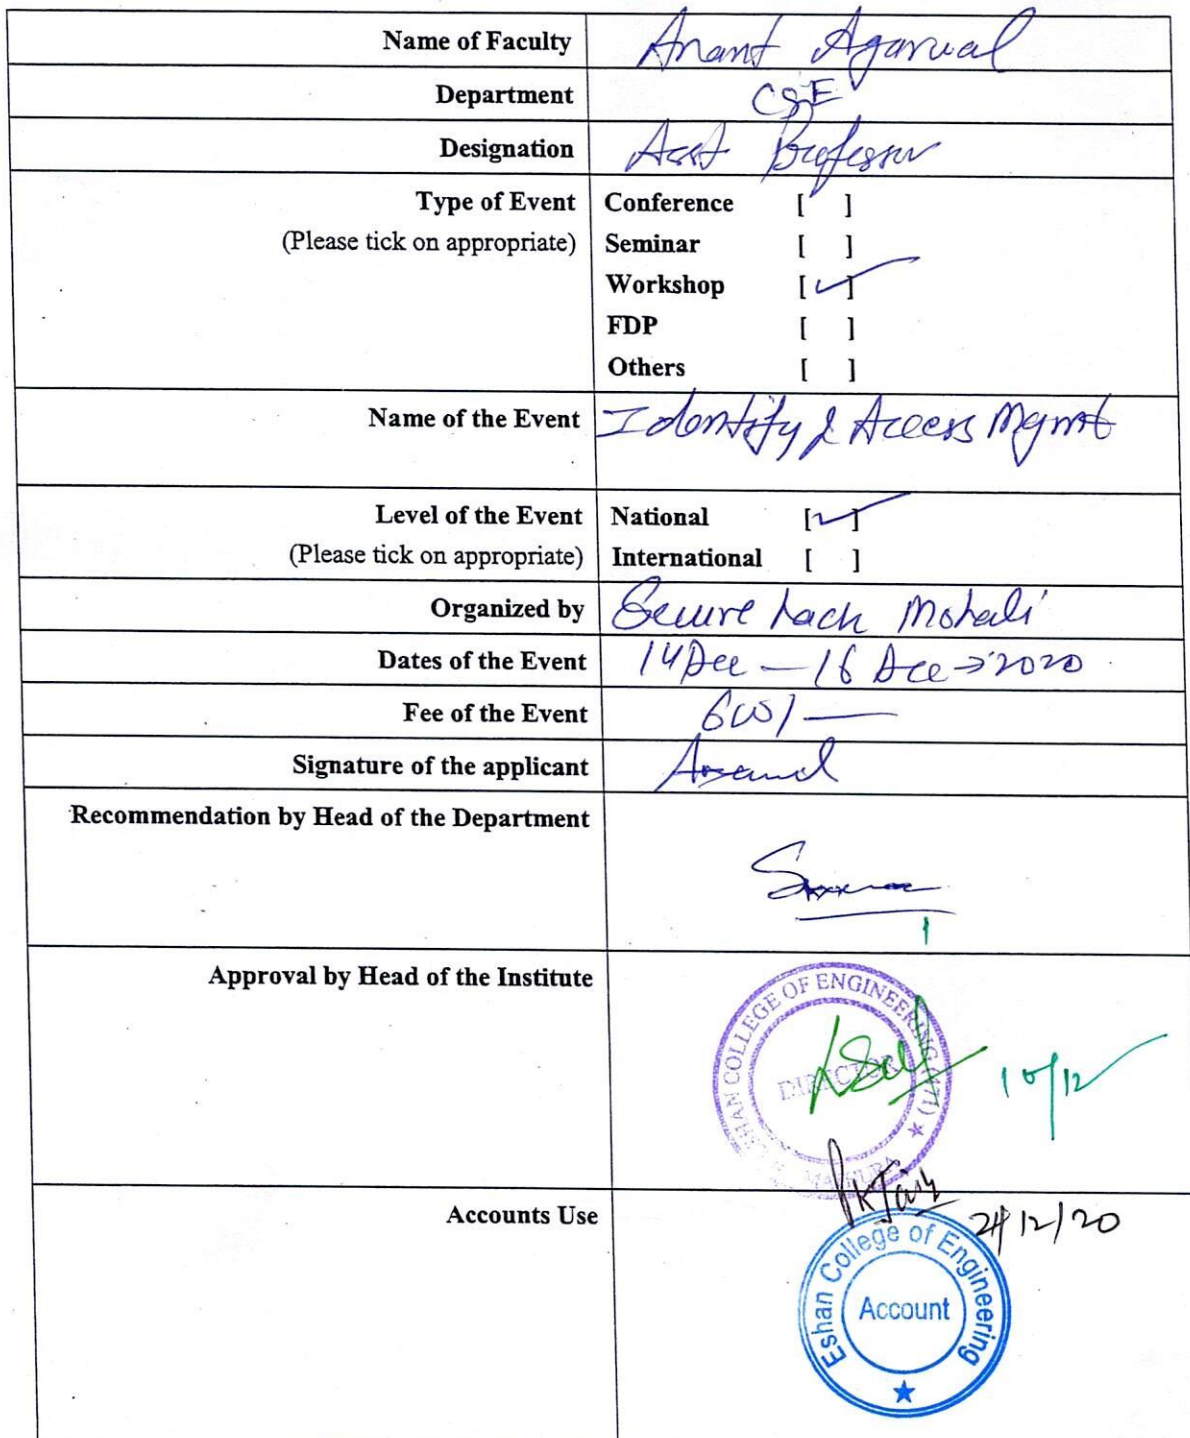 Name of Faculty Anant Agarwal
Department CSE
Designation Asst Professor
Type of Event Conference [ ]
(Please tick on appropriate) Seminar [ ]
Workshop [✓]
FDP [ ]
Others [ ]
Name of the Event Identify & Access Mgmt
Level of the Event National [✓]
(Please tick on appropriate) International [ ]
Organized by Secure hack Mohali
Dates of the Event 14 Dec — 16 Dec → 2020
Fee of the Event 600/—
Signature of the applicant
Recommendation by Head of the Department
Approval by Head of the Institute
COLLEGE OF ENGINEERING (471) ★
DIRECTOR
10/12
Accounts Use
PKJain
24/12/20
Eshan College of Engineering
Account
★